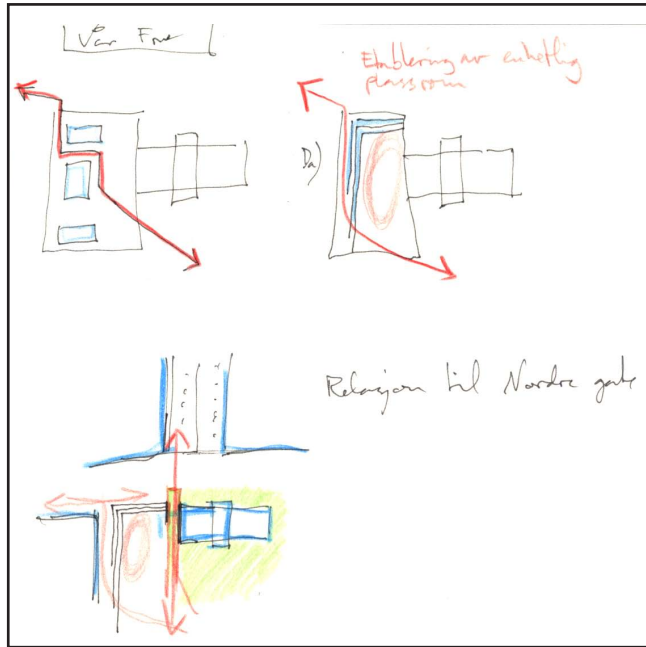 Vår Frue
Etablering av enhetlig
plassrom
Da)
Relasjon til Nordre gate